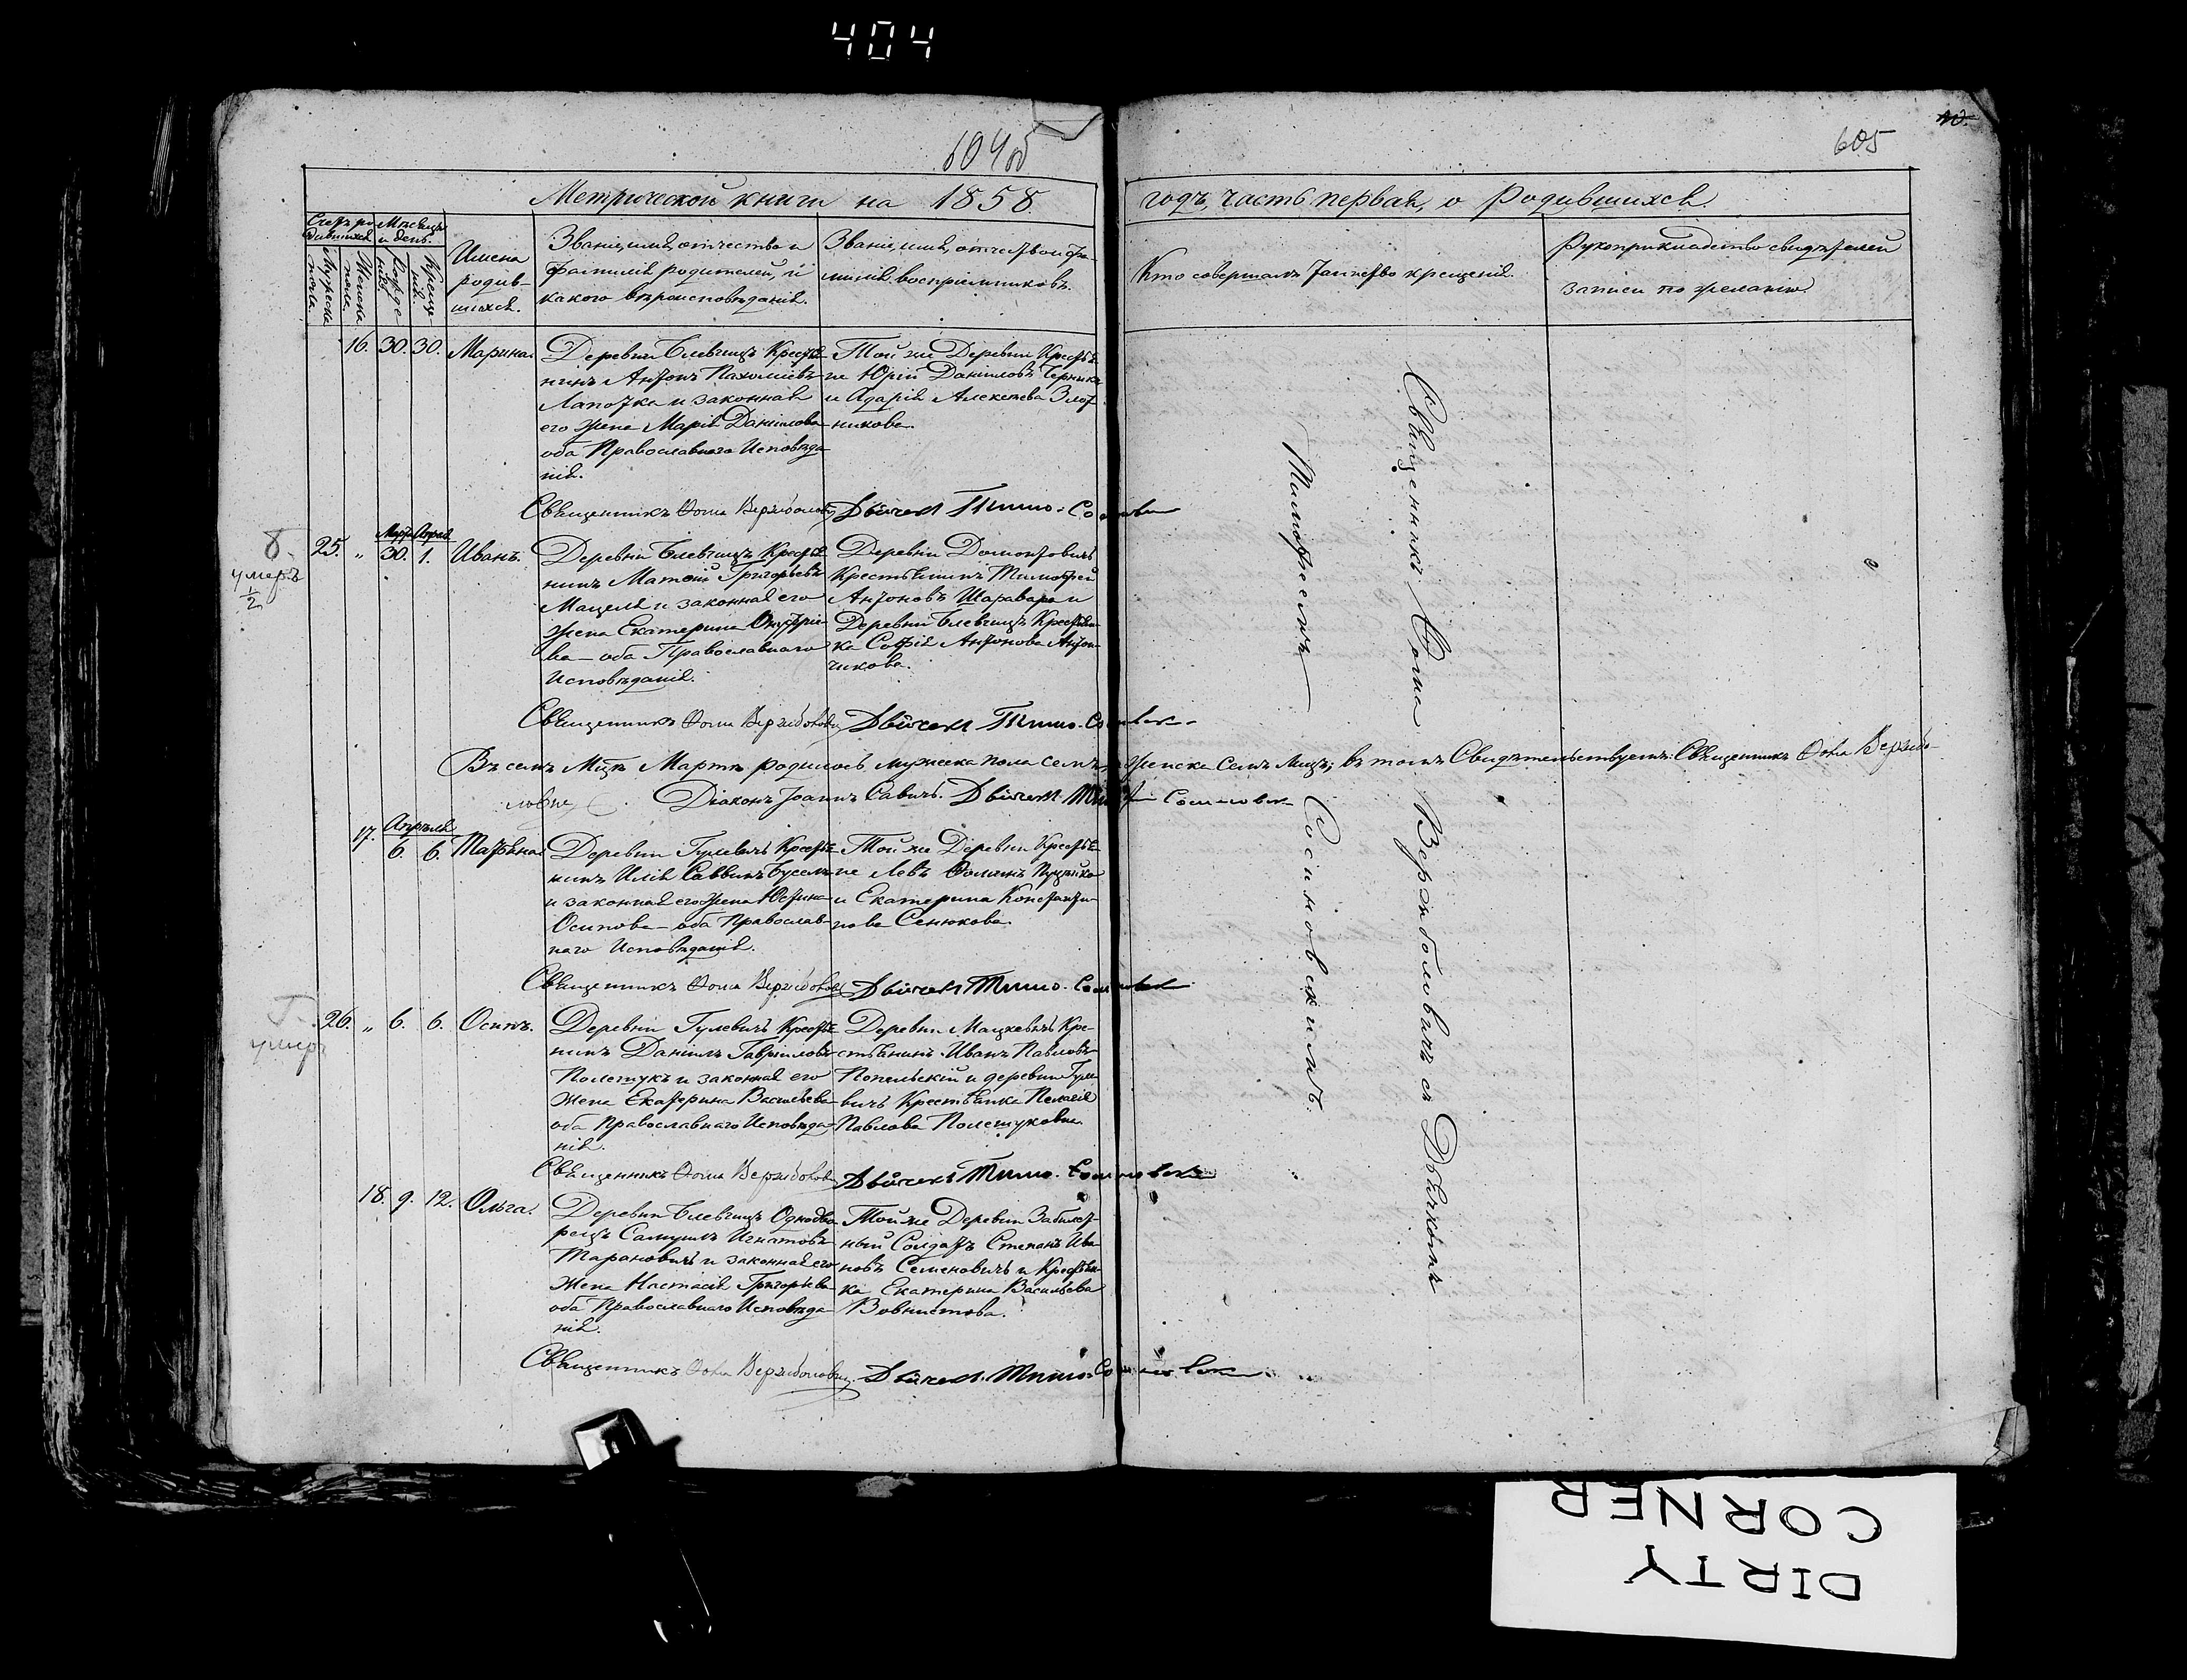 404
604 об
605
Метрической книги на 1858.
годъ, часть первая, о родившихся.
Счетъ ро-
дившихся
Мѣсяцъ
и день.
Мужеска
пола.
Женска
пола.
Рожде-
нія.
Креще-
нія.
Имена
родив-
шихся.
Званіе, имя, отчество и
фамилія родителей, и
какого вѣроисповѣданія.
Званіе, имя, отчество и фа-
милія воспріемниковъ.
Кто совершалъ таинство крещенія.
Рукоприкладство свидѣтелей
записи по желанію.
16. 30. 30. Марина.
Деревни Блевчицъ Крестья-
нинъ Антонъ Пахоміевъ
Лапотка и законная
его жена Марія Даніилова
оба Православнаго Исповѣда-
нія.
Той же Деревни Крестья-
не Юрій Даніиловъ Черника
и Адарія Алексѣева Злот-
никова.
Священникъ Ѳома Вержболовичъ Дьячекъ Тимо. Сосиновск
умеръ
1/2
Марта Апрѣл.
25. „ 30. 1. Иванъ.
Деревни Блевчицъ Крестья-
нинъ Матѳій Григорьевъ
Мацеля и законная его
жена Екатерина Онуфріе-
ва — оба Православнаго
Исповѣданія.
Деревни Домонтовичъ
Крестьянинъ Тимофей
Антоновъ Шаравара и
Деревни Блевчицъ Крестьян-
ка Софія Антонова Антон-
чикова.
Священникъ Ѳома Вержболовичъ Дьячекъ Тимо. Сосиновск
Въ семъ Мцѣ Мартѣ родилось мужеска пола семь, а женска семь лицъ; въ томъ Свидѣтельствуемъ: Священникъ Ѳома Вержбо-
ловичъ. Діаконъ Іоаннъ Савичъ. Дьячекъ Тимофей Сосиновск
Апрѣля
17. 6. 6. Татьяна.
Деревни Гулевичъ Крестья-
нинъ Илія Саввинъ Бусел
и законная его жена Юстина
Осипова — оба Православ-
наго Исповѣданія.
Той же Деревни Крестья-
не Левъ Ѳоминъ
и Екатерина Константи-
нова Сенюкова.
Священникъ Ѳома Вержболовичъ Дьячекъ Тимо. Сосиновск
умеръ
26. „ 6. 6. Осипъ.
Деревни Гулевичъ Крестья-
нинъ Даніилъ Гавріиловъ
Полещукъ и законная его
жена Екатерина Васильева
оба Православнаго Исповѣда-
нія.
Деревни Мацкевичъ Кре-
стьянинъ Иванъ Павловъ
Попельскій и деревни Гуле-
вичъ Крестьянка Пелагія
Павлова Полещукова.
Священникъ Ѳома Вержболовичъ Дьячекъ Тимо. Сосиновск
18. 9. 12. Ольга.
Деревни Блевчицъ Однодво-
рецъ Самуилъ Игнатовъ
Тарановичъ и законная его
жена Настасія Григорьева
оба Православнаго Исповѣда-
нія.
Той же Деревни Забилет-
ный Солдатъ Степанъ Ива-
новъ Семеновичъ и Крестьян-
ка Екатерина Васильева
Вовнистова.
Священникъ Ѳома Вержболовичъ. Дьячекъ. Тимо. Сосиновск
Священникъ Ѳома Вержболовичъ съ Дьячкомъ
Тимофеемъ Сосиновскимъ.
DIRTY
CORNER